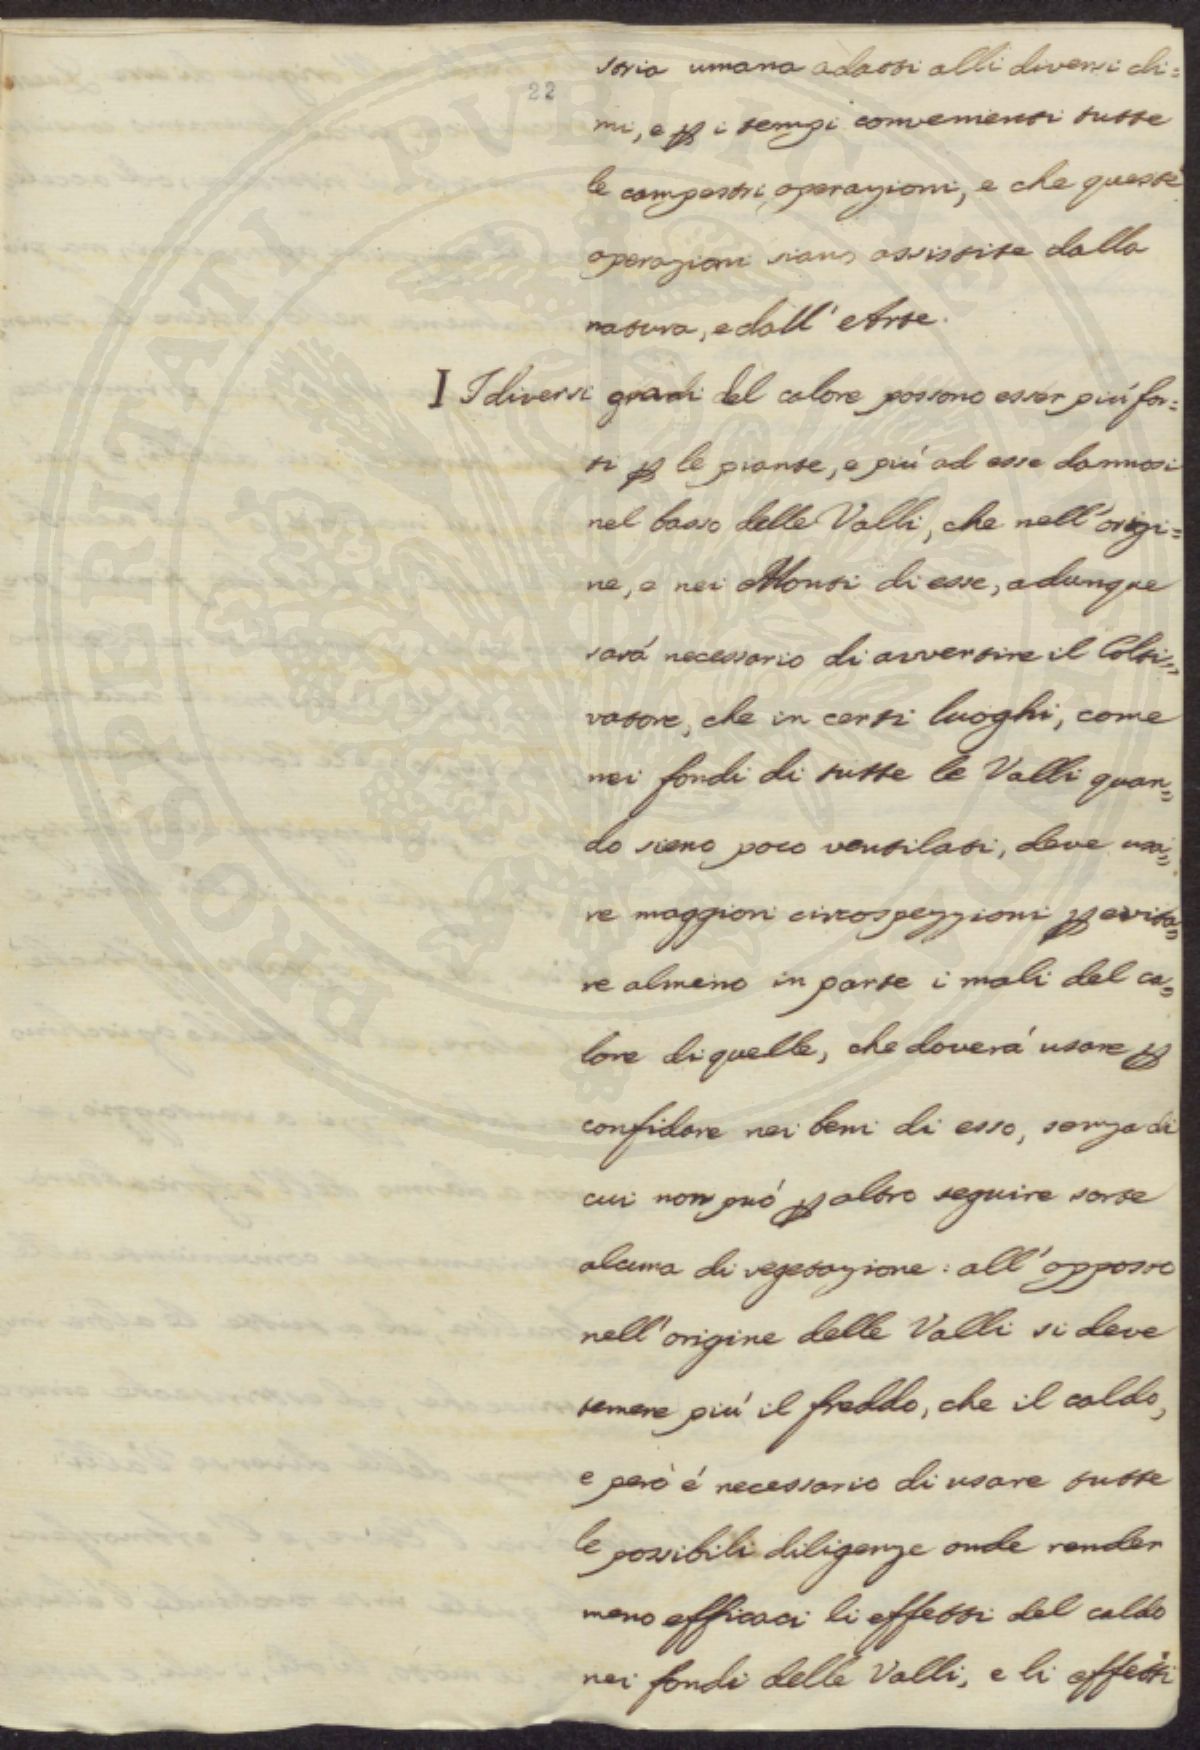 22
storia umana adatti alli diversi cli=
mi, e ꝑ i tempi convenienti tutte
le campestri operazioni, e che queste
operazioni siano assistite dalla
natura, e dall' Arte.
I I diversi gradi del calore possono esser piú for=
ti ꝑ le piante, e piú ad esse dannosi
nel basso delle Valli, che nell'origi=
ne, e nei Monti di esse, adunque
sará necessario di avvertire il Colti=
vatore, che in certi luoghi, come
nei fondi di tutte le Valli quan=
do sieno poco ventilati, deve usa=
re maggiori circospezzioni ꝑ evita=
re almeno in parte i mali del ca=
lore di quelle, che doverá usare ꝑ
confidare nei beni di esso, senza di
cui non puó ꝑ altro seguire sorte
alcuna di vegetazione: all'opposto
nell'origine delle Valli si deve
temere piú il freddo, che il caldo,
e però é necessario di usare tutte
le possibili diligenze onde render
meno efficaci li effetti del caldo
nei fondi delle Valli, e li effetti
PROSPERITATI PVBLICAE